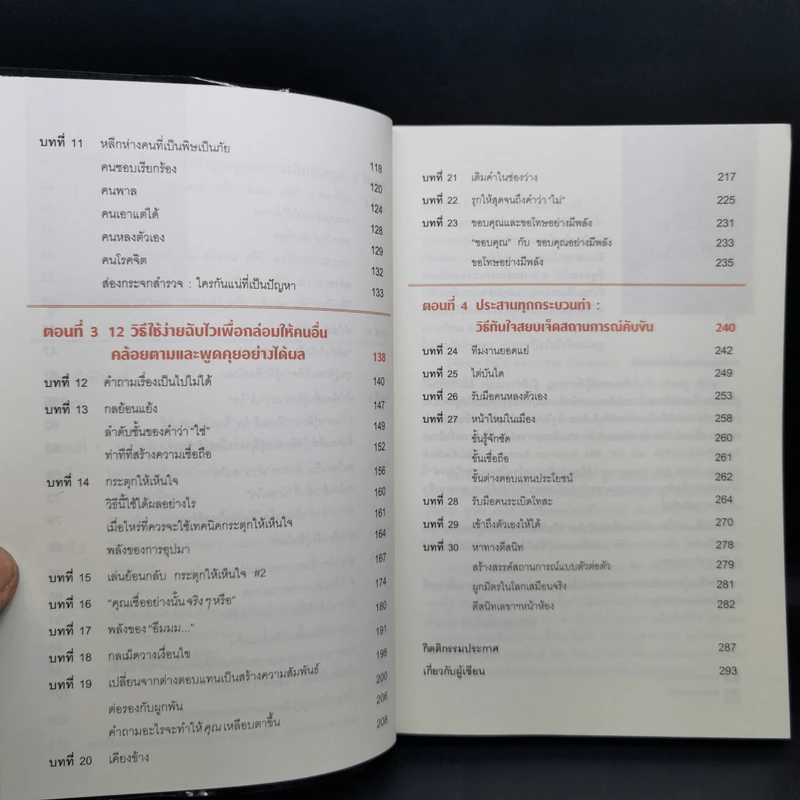 บทที่ 11 หลีกห่างคนที่เป็นพิษเป็นภัย 118
คนชอบเรียกร้อง 120
คนพาล 124
คนเอาแต่ได้ 128
คนหลงตัวเอง 129
คนโรคจิต 132
ส่องกระจกสำรวจ : ใครกันแน่ที่เป็นปัญหา 133
ตอนที่ 3 12 วิธีใช้ง่ายฉับไวเพื่อกล่อมให้คนอื่น
คล้อยตามและพูดคุยอย่างได้ผล 138
บทที่ 12 คำถามเรื่องเป็นไปไม่ได้ 140
บทที่ 13 กลย้อนแย้ง 147
ลำดับชั้นของคำว่า "ใช่" 149
ท่าทีที่สร้างความเชื่อถือ 152
บทที่ 14 กระตุกให้เห็นใจ 156
วิธีนี้ใช้ได้ผลอย่างไร 160
เมื่อไหร่ที่ควรจะใช้เทคนิคกระตุกให้เห็นใจ 161
พลังของการอุปมา 164
บทที่ 15 เล่นย้อนกลับ กระตุกให้เห็นใจ #2 167
บทที่ 16 "คุณเชื่ออย่างนั้นจริงๆ หรือ" 174
บทที่ 17 พลังของ "อืมมม..." 180
บทที่ 18 กลเม็ดวางเงื่อนไข 191
บทที่ 19 เปลี่ยนจากต่างตอบแทนเป็นสร้างความสัมพันธ์ 198
ต่อรองกับผูกพัน 200
คำถามอะไรจะทำให้ คุณ เหลือบตาขึ้น 206
บทที่ 20 เคียงข้าง 208
บทที่ 21 เติมคำในช่องว่าง 217
บทที่ 22 รุกให้สุดจนถึงคำว่า "ไม่" 225
บทที่ 23 ขอบคุณและขอโทษอย่างมีพลัง 231
"ขอบคุณ" กับ ขอบคุณอย่างมีพลัง 233
ขอโทษอย่างมีพลัง 235
ตอนที่ 4 ประสานทุกกระบวนท่า :
วิธีทันใจสยบเจ็ดสถานการณ์คับขัน 240
บทที่ 24 ทีมงานยอดแย่ 242
บทที่ 25 ไต่บันได 249
บทที่ 26 รับมือคนหลงตัวเอง 253
บทที่ 27 หน้าใหม่ในเมือง 258
ขั้นรู้จักชัด 260
ขั้นเชื่อถือ 261
ขั้นต่างตอบแทนประโยชน์ 262
บทที่ 28 รับมือคนระเบิดโทสะ 264
บทที่ 29 เข้าถึงตัวเองให้ได้ 270
บทที่ 30 หาทางตีสนิท 278
สร้างสรรค์สถานการณ์แบบตัวต่อตัว 279
ผูกมิตรในโลกเสมือนจริง 281
ตีสนิทเลขาฯหน้าห้อง 282
กิตติกรรมประกาศ 287
เกี่ยวกับผู้เขียน 293